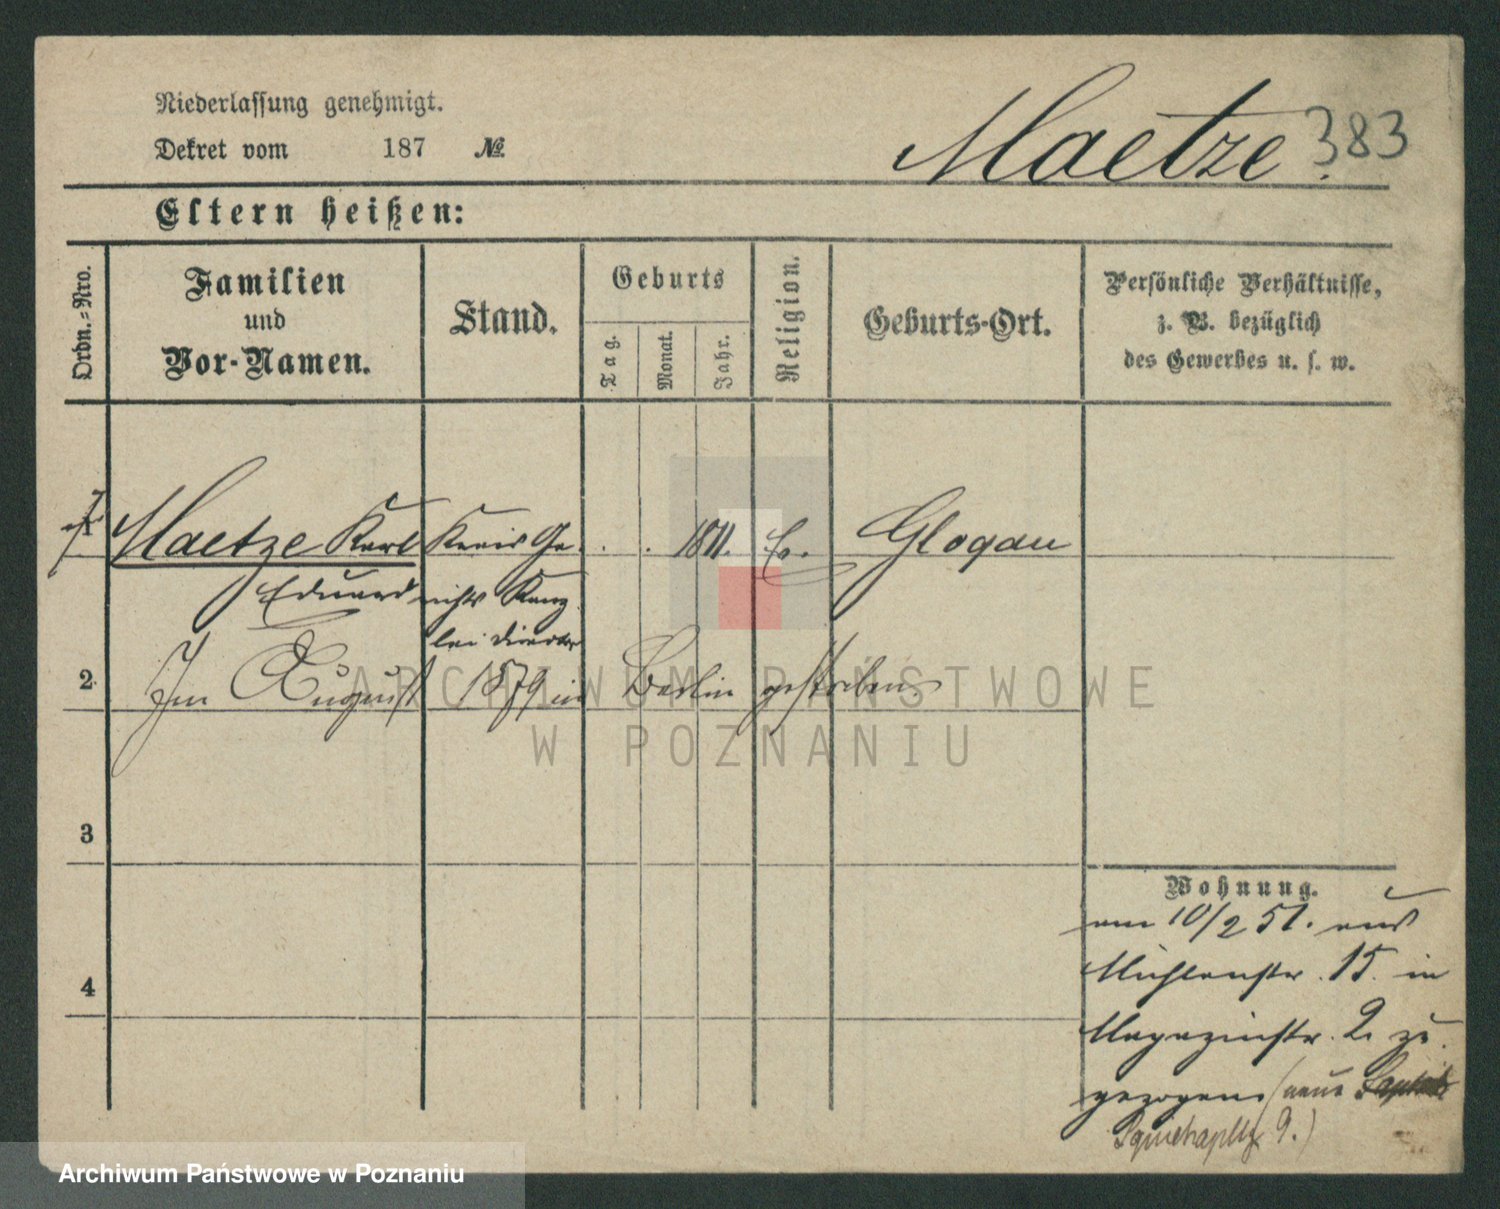 Niederlassung genehmigt.
Dekret vom 187 №
Maetze. 383
Eltern heißen:
Ordn.=Nro.
Familien
und
Vor-Namen.
Stand.
Geburts
Tag.
Monat.
Jahr.
Religion.
Geburts-Ort.
Persönliche Verhältnisse,
z. B. bezüglich
des Gewerbes u. s. w.
1 Maetze Karl Kreis Ge . . 1811. Ev. Glogau
Eduard richts Kanz
lei Director
2 Im August 1879 in Berlin gestorben
3
4
Wohnung.
am 10/2 51. aus
Mühlenstr. 15. in
Magazinstr. 2 zu
gezogen (neue
9.)
ARCHIWUM PAŃSTWOWE
W POZNANIU
Archiwum Państwowe w Poznaniu